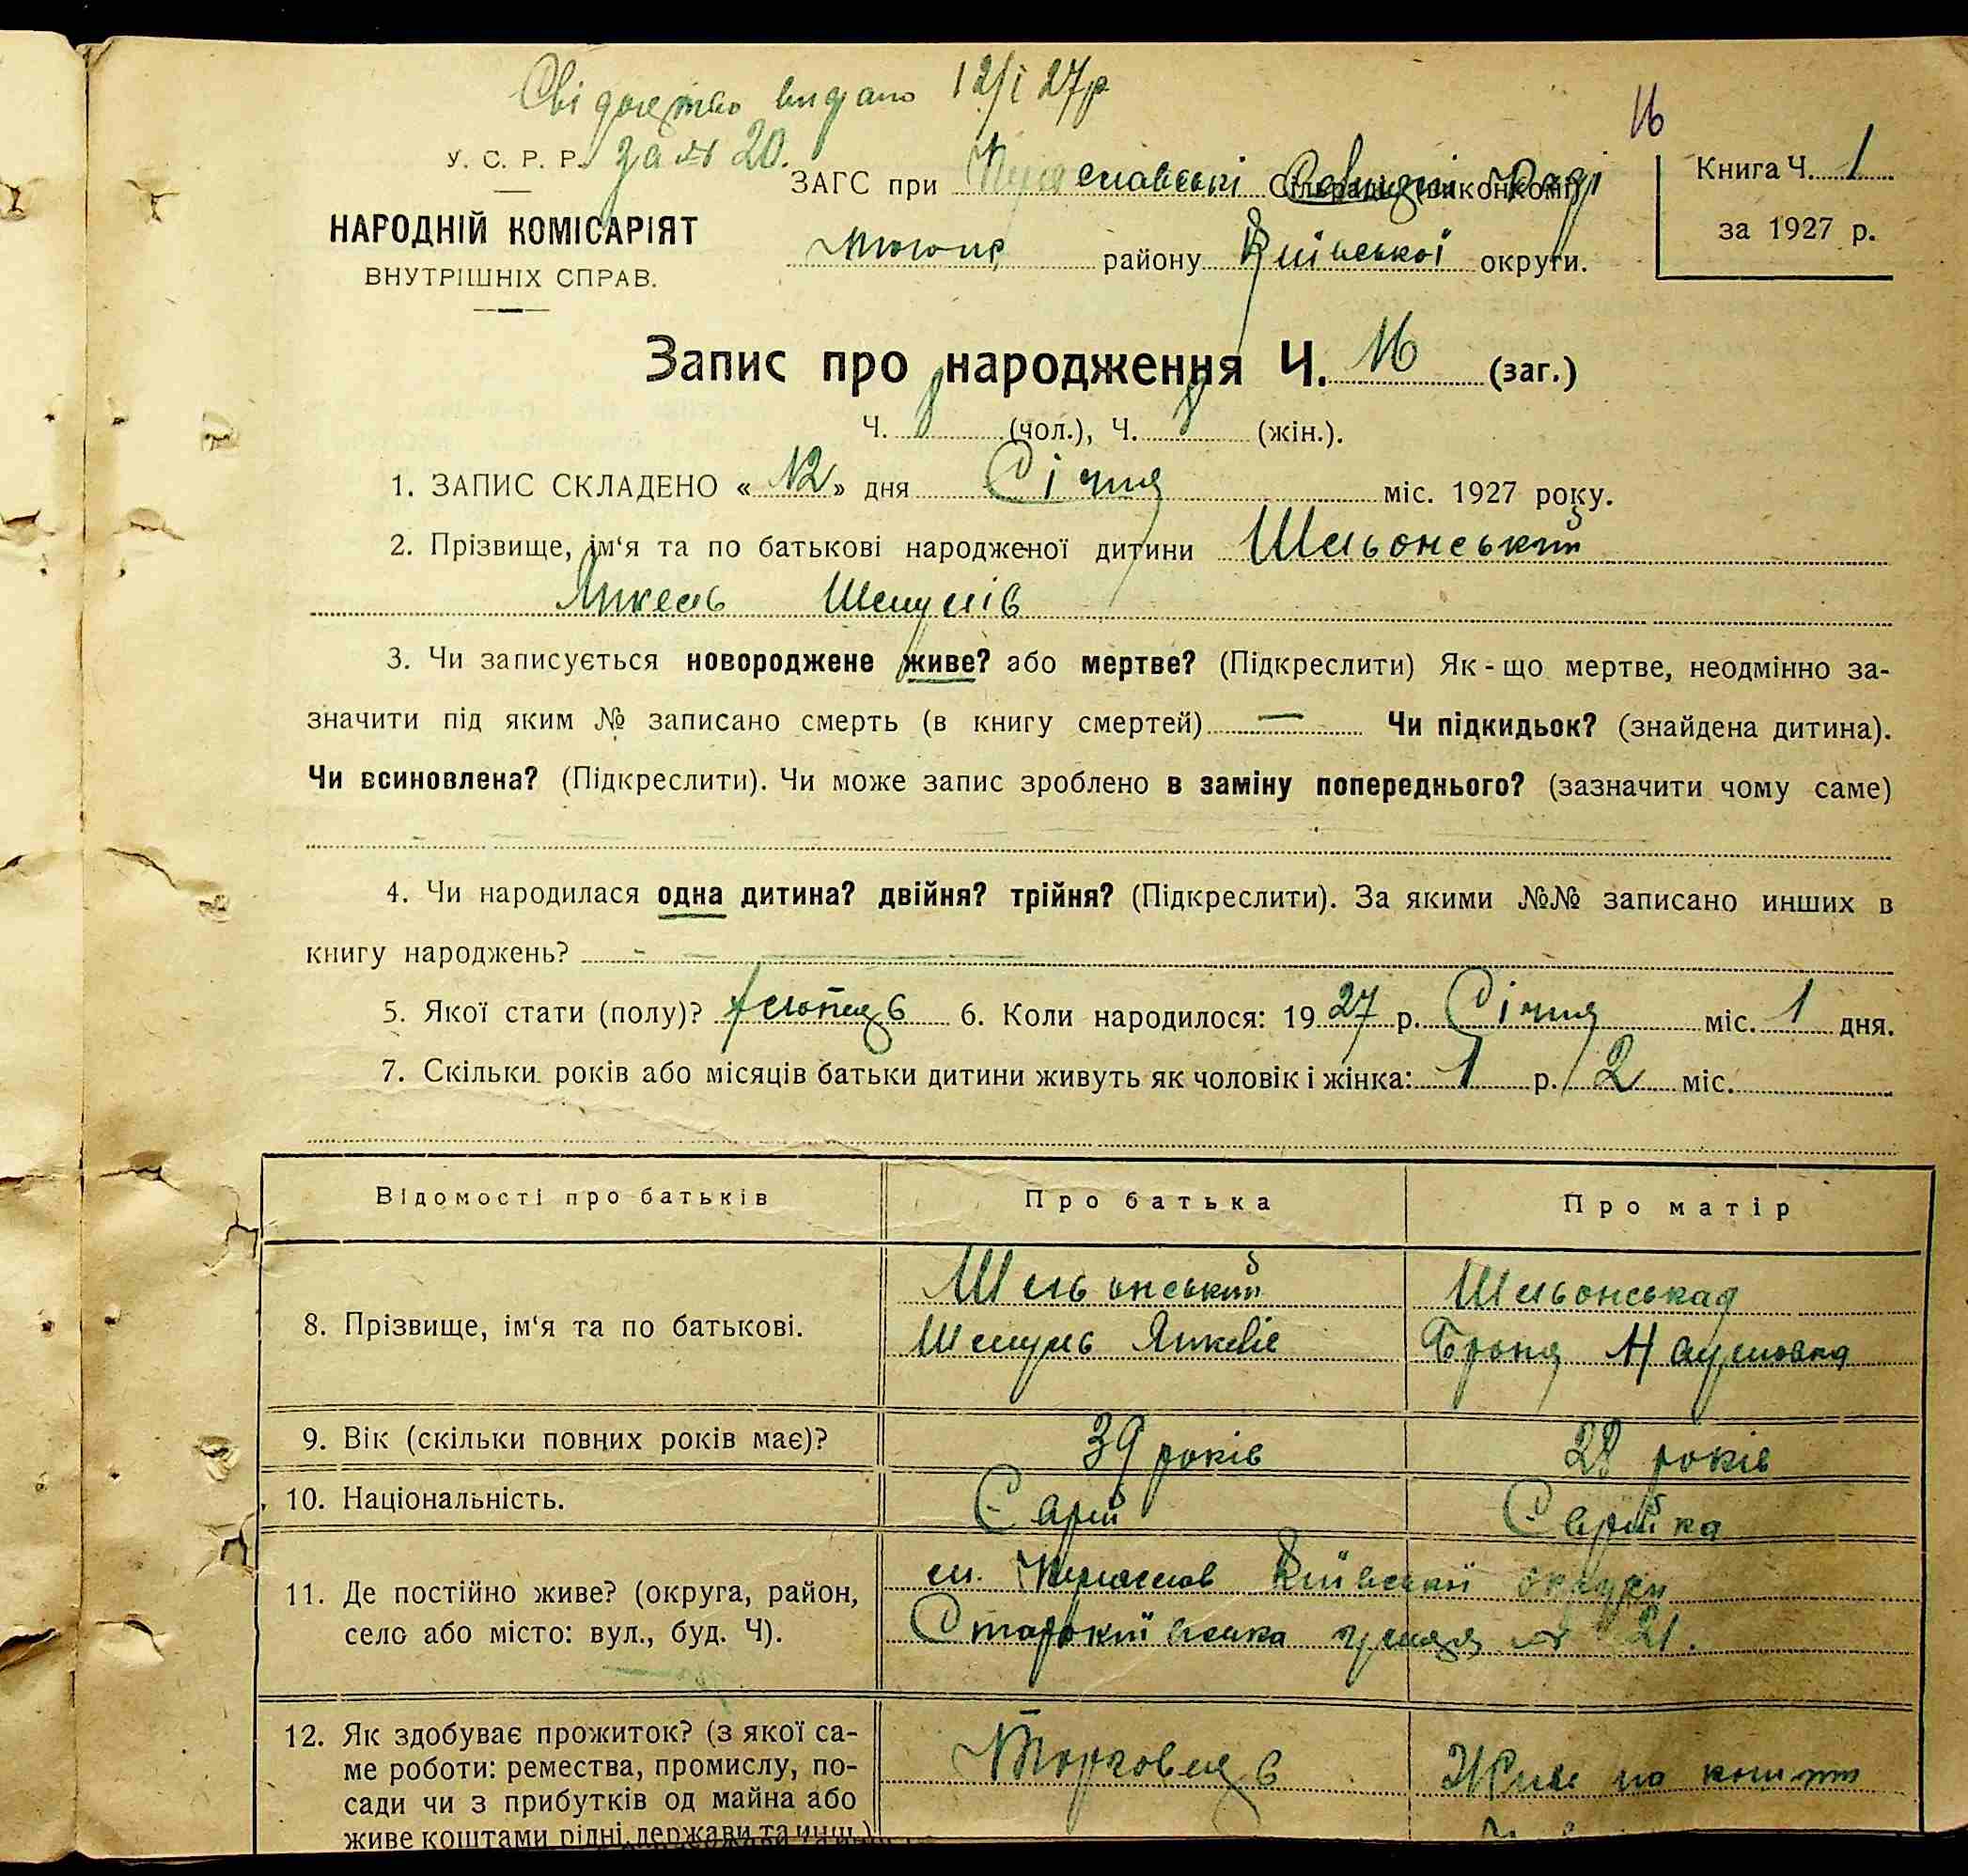 Свідоцтво видано 12/I 27р
У. С. Р. Р. за № 20.
ЗАГС при Переяславські Селищні Раді
16
Книга Ч. 1
за 1927 р.
НАРОДНІЙ КОМІСАРІЯТ
ВНУТРІШНІХ СПРАВ.
району Київської округи.
Запис про народження Ч. 16 (заг.)
Ч. 8 (чол.), Ч. 8 (жін.).
1. ЗАПИС СКЛАДЕНО « 12 » дня Січня міс. 1927 року.
2. Прізвище, ім‘я та по батькові народженої дитини Шельонський
Янкель Шемулів
3. Чи записується новороджене живе? або мертве? (Підкреслити) Як - що мертве, неодмінно за-
значити під яким № записано смерть (в книгу смертей) — Чи підкидьок? (знайдена дитина).
Чи всиновлена? (Підкреслити). Чи може запис зроблено в заміну попереднього? (зазначити чому саме)
4. Чи народилася одна дитина? двійня? трійня? (Підкреслити). За якими №№ записано инших в
книгу народжень? - — —
5. Якої стати (полу)? хлопець 6. Коли народилося: 19 27 р. Січня міс. 1 дня.
7. Скільки років або місяців батьки дитини живуть як чоловік і жінка: 1 р. 2 міс.
Відомості про батьків
Про батька
Про матір
8. Прізвище, ім‘я та по батькові.
Шельонський
Шемуль Янкелів
Шельонськая
Броня Наумовна
9. Вік (скільки повних років має)?
39 років
28 років
10. Національність.
Єврей
Єврейка
11. Де постійно живе? (округа, район,
село або місто: вул., буд. Ч).
м. Переяслов Київської округи
Старокиївська улиця № 21.
12. Як здобуває прожиток? (з якої са-
ме роботи: ремества, промислу, по-
сади чи з прибутків од майна або
живе коштами рідні, держави та инш.)
Торговець
Живе на кошти